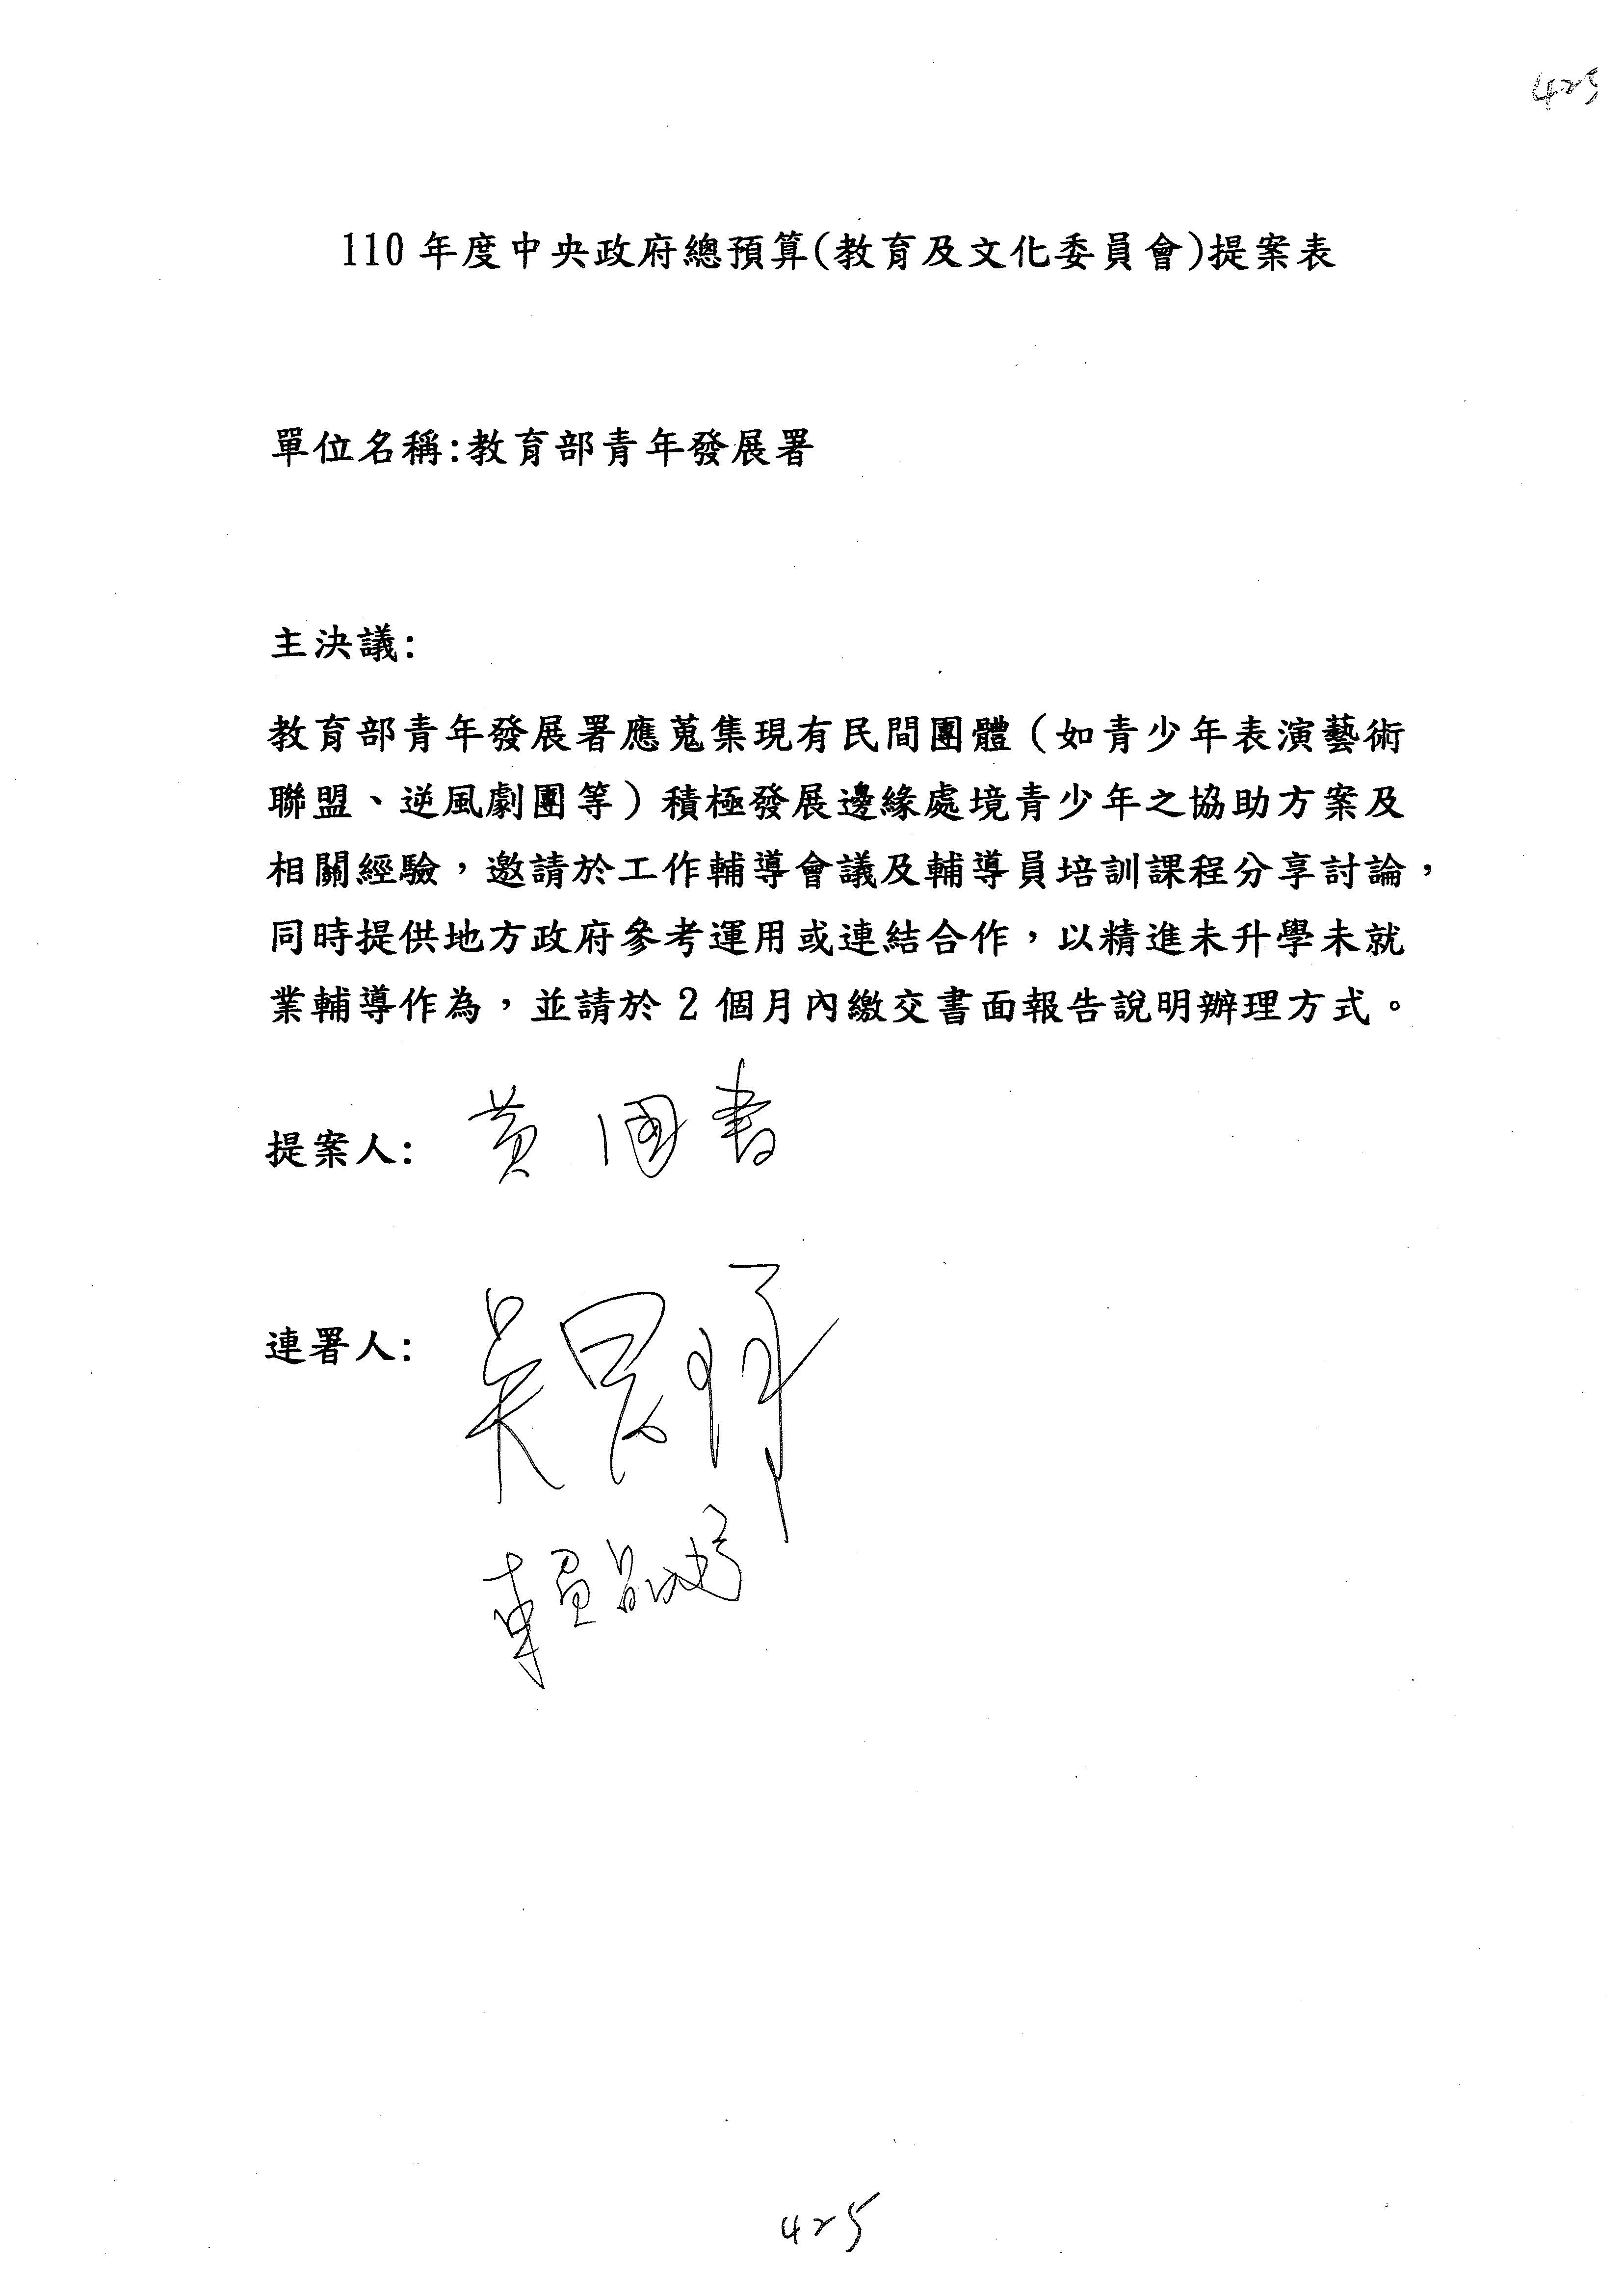 425
110 年度中央政府總預算(教育及文化委員會)提案表
單位名稱:教育部青年發展署
主決議:
教育部青年發展署應蒐集現有民間團體（如青少年表演藝術
聯盟、逆風劇團等）積極發展邊緣處境青少年之協助方案及
相關經驗，邀請於工作輔導會議及輔導員培訓課程分享討論，
同時提供地方政府參考運用或連結合作，以精進未升學未就
業輔導作為，並請於 2 個月內繳交書面報告說明辦理方式。
提案人: 黃國書
連署人: 吳思瑤
賴品妤
425